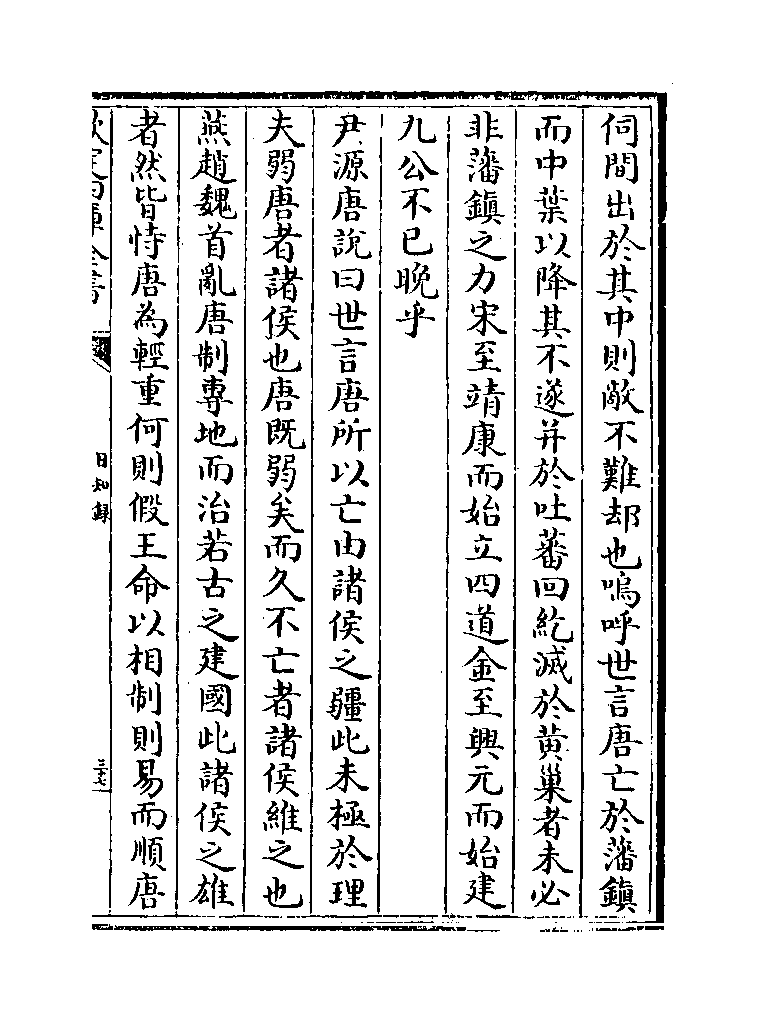 伺間出於其中則敵不難却也嗚呼世言唐亡於藩鎮
而中葉以降其不遂并於吐蕃回紇滅於黄巢者未必
非藩鎮之力宋至靖康而始立四道金至興元而始建
九公不已晚乎
尹源唐說曰世言唐所以亡由諸侯之疆此未極於理
夫弱唐者諸侯也唐既弱矣而久不亡者諸侯維之也
燕趙魏首亂唐制專地而治若古之建國此諸侯之雄
者然皆恃唐為輕重何則假王命以相制則易而順唐
欽定四庫全書
日知録
三十七